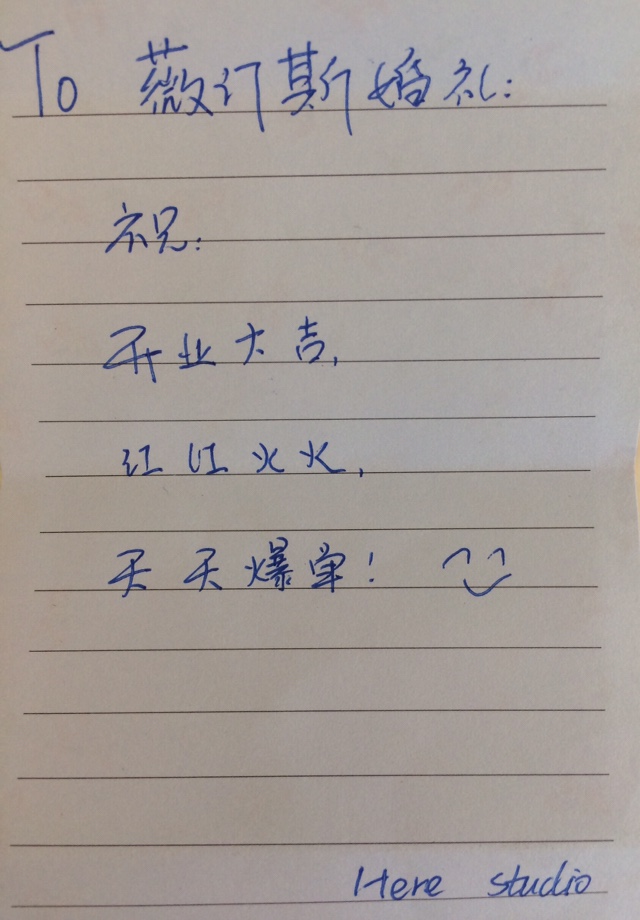 To 薇订斯婚礼:
祝:
开业大吉,
红红火火,
天天爆单!
Here studio